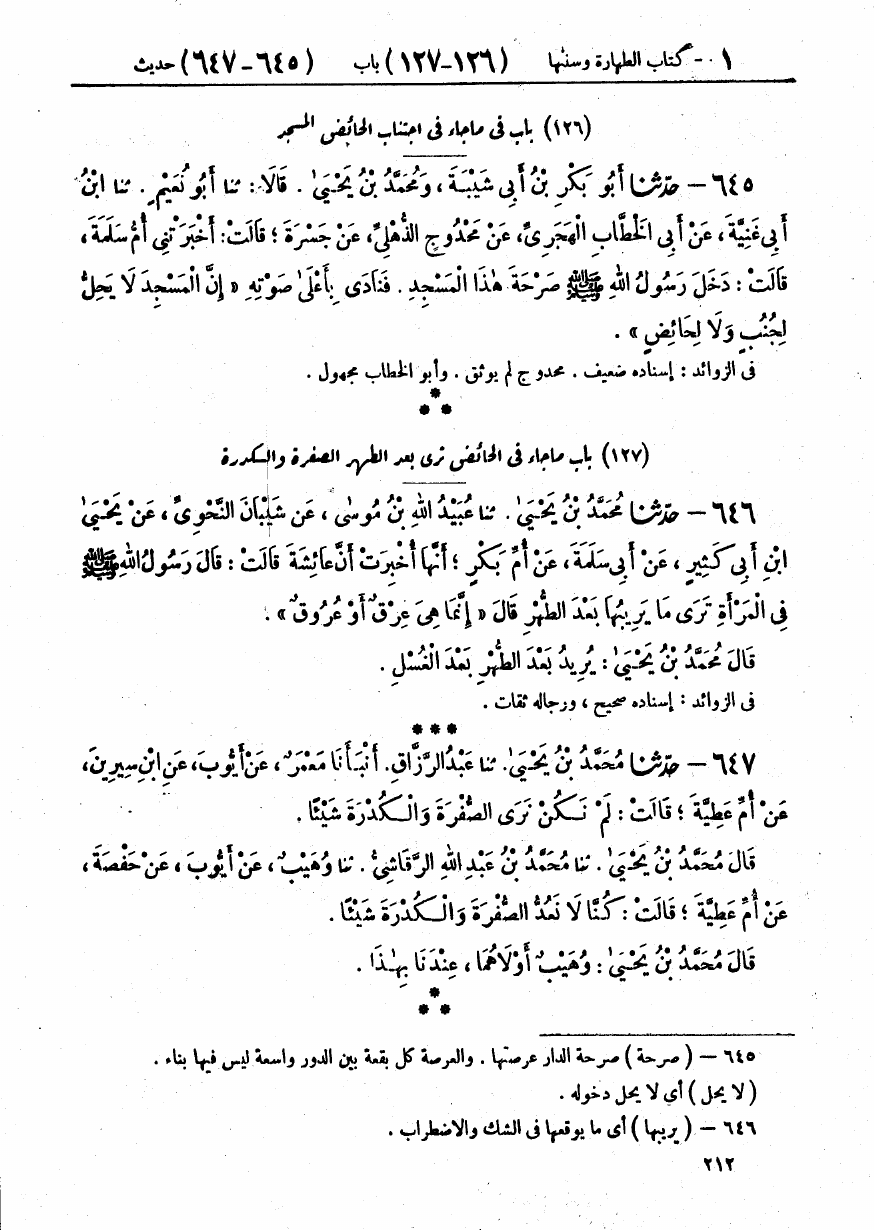 ١ - كتاب الطهارة وسننها (١٢٦-١٢٧) باب (٦٤٥-٦٤٧) حديث
(١٢٦) باب فى ماجاء فى اجتناب الحائض المسجد
٦٤٥ – حدّثنا أَبُو بَكْرِ بْنُ أَبِى شَيْبَةَ ، وَمُحَمَّدُ بْنُ يَحْيَىٰ . قَالَا : ثنا أَبُو نُعَيْمٍ . ثنا ابْنُ
أَبِى غَنِيَّةَ ، عَنْ أَبِى الْخَطَّابِ الْهَجَرِىِّ، عَنْ مَحْدُوجٍ الذُّهْلِىِّ، عَنْ جَسْرَةَ ؛ قَالَتْ: أَخْبَرَتْنِى أُمُّ سَلَمَةَ ،
قَالَتْ : دَخَلَ رَسُولُ اللهِ ﷺ صَرْحَةَ هٰذَا الْمَسْجِدِ . فَنَادَى بِأَعْلَىٰ صَوْتِهِ « إِنَّ الْمَسْجِدَ لَا يَحِلُّ
لِجُنُبٍ وَلَا لِحَائِضٍ » .
فى الزوائد : إسناده ضعيف . محدوج لم يوثق . وأبو الخطاب مجهول .
***
(١٢٧) باب ماجاء فى الحائض ترى بعد الطهر الصفرة والكدرة
٦٤٦ – حدّثنا مُحَمَّدُ بْنُ يَحْيَىٰ . ثنا عُبَيْدُ اللهِ بْنُ مُوسَى ، عَن شَيْبَانَ النَّحْوِىِّ ، عَنْ يَحْيَىٰ
ابْنِ أَبِى كَثِيرٍ ، عَنْ أَبِى سَلَمَةَ ، عَنْ أُمِّ بَكْرٍ ؛ أَنَّهَا أُخْبِرَتْ أَنَّ عَائِشَةَ قَالَتْ : قَالَ رَسُولُ اللهِ ﷺ
فِى الْمَرْأَةِ تَرَى مَا يَرِيبُهَا بَعْدَ الطُّهْرِ قَالَ « إِنَّمَا هِىَ عِرْقٌ أَوْ عُرُوقٌ » .
قَالَ مُحَمَّدُ بْنُ يَحْيَىٰ : يُرِيدُ بَعْدَ الطُّهْرِ بَعْدَ الْغُسْلِ .
فى الزوائد : إسناده صحيح ، ورجاله ثقات .
***
٦٤٧ – حدّثنا مُحَمَّدُ بْنُ يَحْيَىٰ. ثنا عَبْدُ الرَّزَّاقِ. أَنْبَأَنَا مَعْمَرٌ ، عَنْ أَيُّوبَ، عَنِ ابْنِ سِيرِينَ،
عَنْ أُمِّ عَطِيَّةَ ؛ قَالَتْ : لَمْ نَكُنْ نَرَى الصُّفْرَةَ وَالْكُدْرَةَ شَيْئًا .
قَالَ مُحَمَّدُ بْنُ يَحْيَىٰ . ثنا مُحَمَّدُ بْنُ عَبْدِ اللهِ الرَّقَاشِىُّ . ثنا وُهَيْبٌ ، عَنْ أَيُّوبَ ، عَنْ حَفْصَةَ ،
عَنْ أُمِّ عَطِيَّةَ ؛ قَالَتْ : كُنَّا لَا نَعُدُّ الصُّفْرَةَ وَالْكُدْرَةَ شَيْئًا .
قَالَ مُحَمَّدُ بْنُ يَحْيَىٰ : وُهَيْبٌ أَوْلَاهُمَا ، عِنْدَنَا بِهٰذَا .
***
٦٤٥ – ( صرحة ) صرحة الدار عرصتها . والعرصة كل بقعة بين الدور واسعة ليس فيها بناء .
( لا يحل ) أى لا يحل دخوله .
٦٤٦ – ( يريبها ) أى ما يوقعها فى الشك والاضطراب .
٢١٢